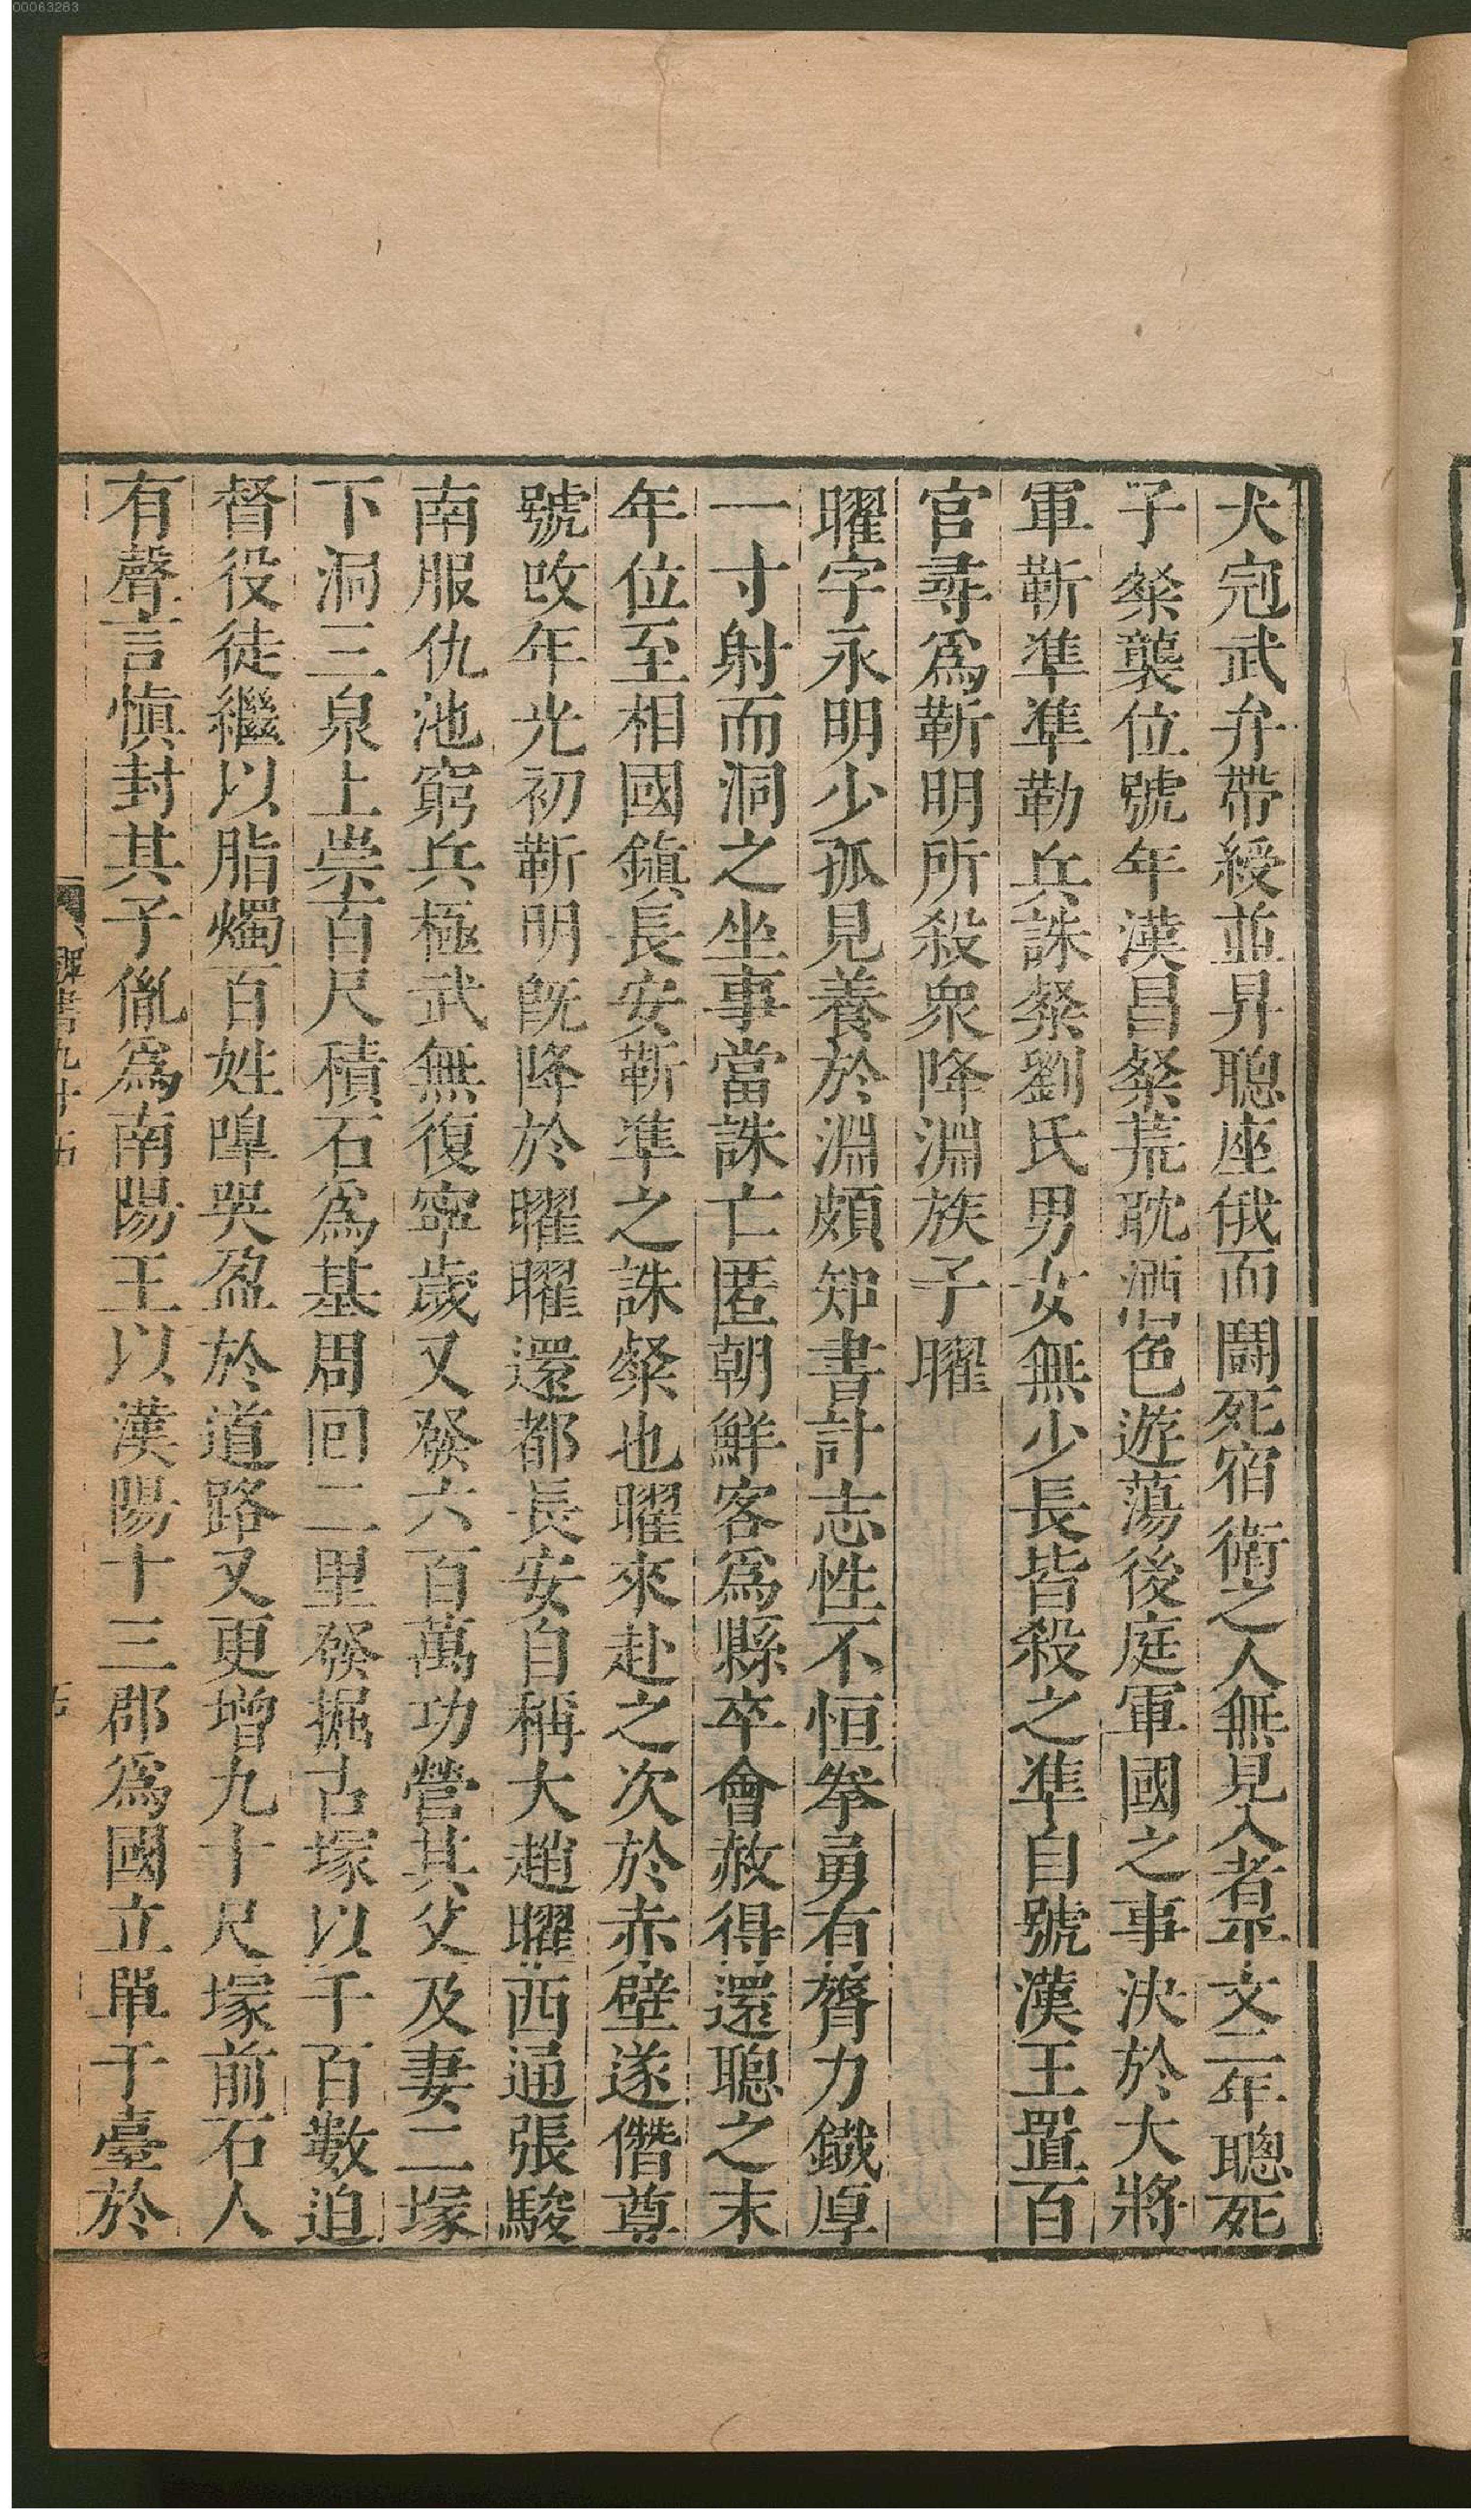 00063263
犬冠武弁帶綬並昇聰座俄而鬬死宿衛之人無見入者平文二年聰死
子粲襲位號年漢昌粲荒耽酒色遊蕩後庭軍國之事決於大將
軍靳準準勒兵誅粲劉氏男女無少長皆殺之準自號漢王置百
官尋爲靳明所殺衆降淵族子曜
曜字永明少孤見養於淵頗知書計志性不恒拳勇有膂力鐵厚
一寸射而洞之坐事當誅亡匿朝鮮客爲縣卒會赦得還聰之末
年位至相國鎮長安靳準之誅粲也曜來赴之次於赤壁遂僭尊
號改年光初靳明既降於曜曜還都長安自稱大趙曜西通張駿
南服仇池窮兵極武無復寧歲又發六百萬功營其父及妻二塚
下洞三泉上崇百尺積石爲基周回二里發掘古塚以千百數迫
督役徒繼以脂燭百姓嘷哭盈於道路又更增九十尺塚前石人
有聲言慎封其子胤爲南陽王以漢陽十三郡爲國立單于臺於